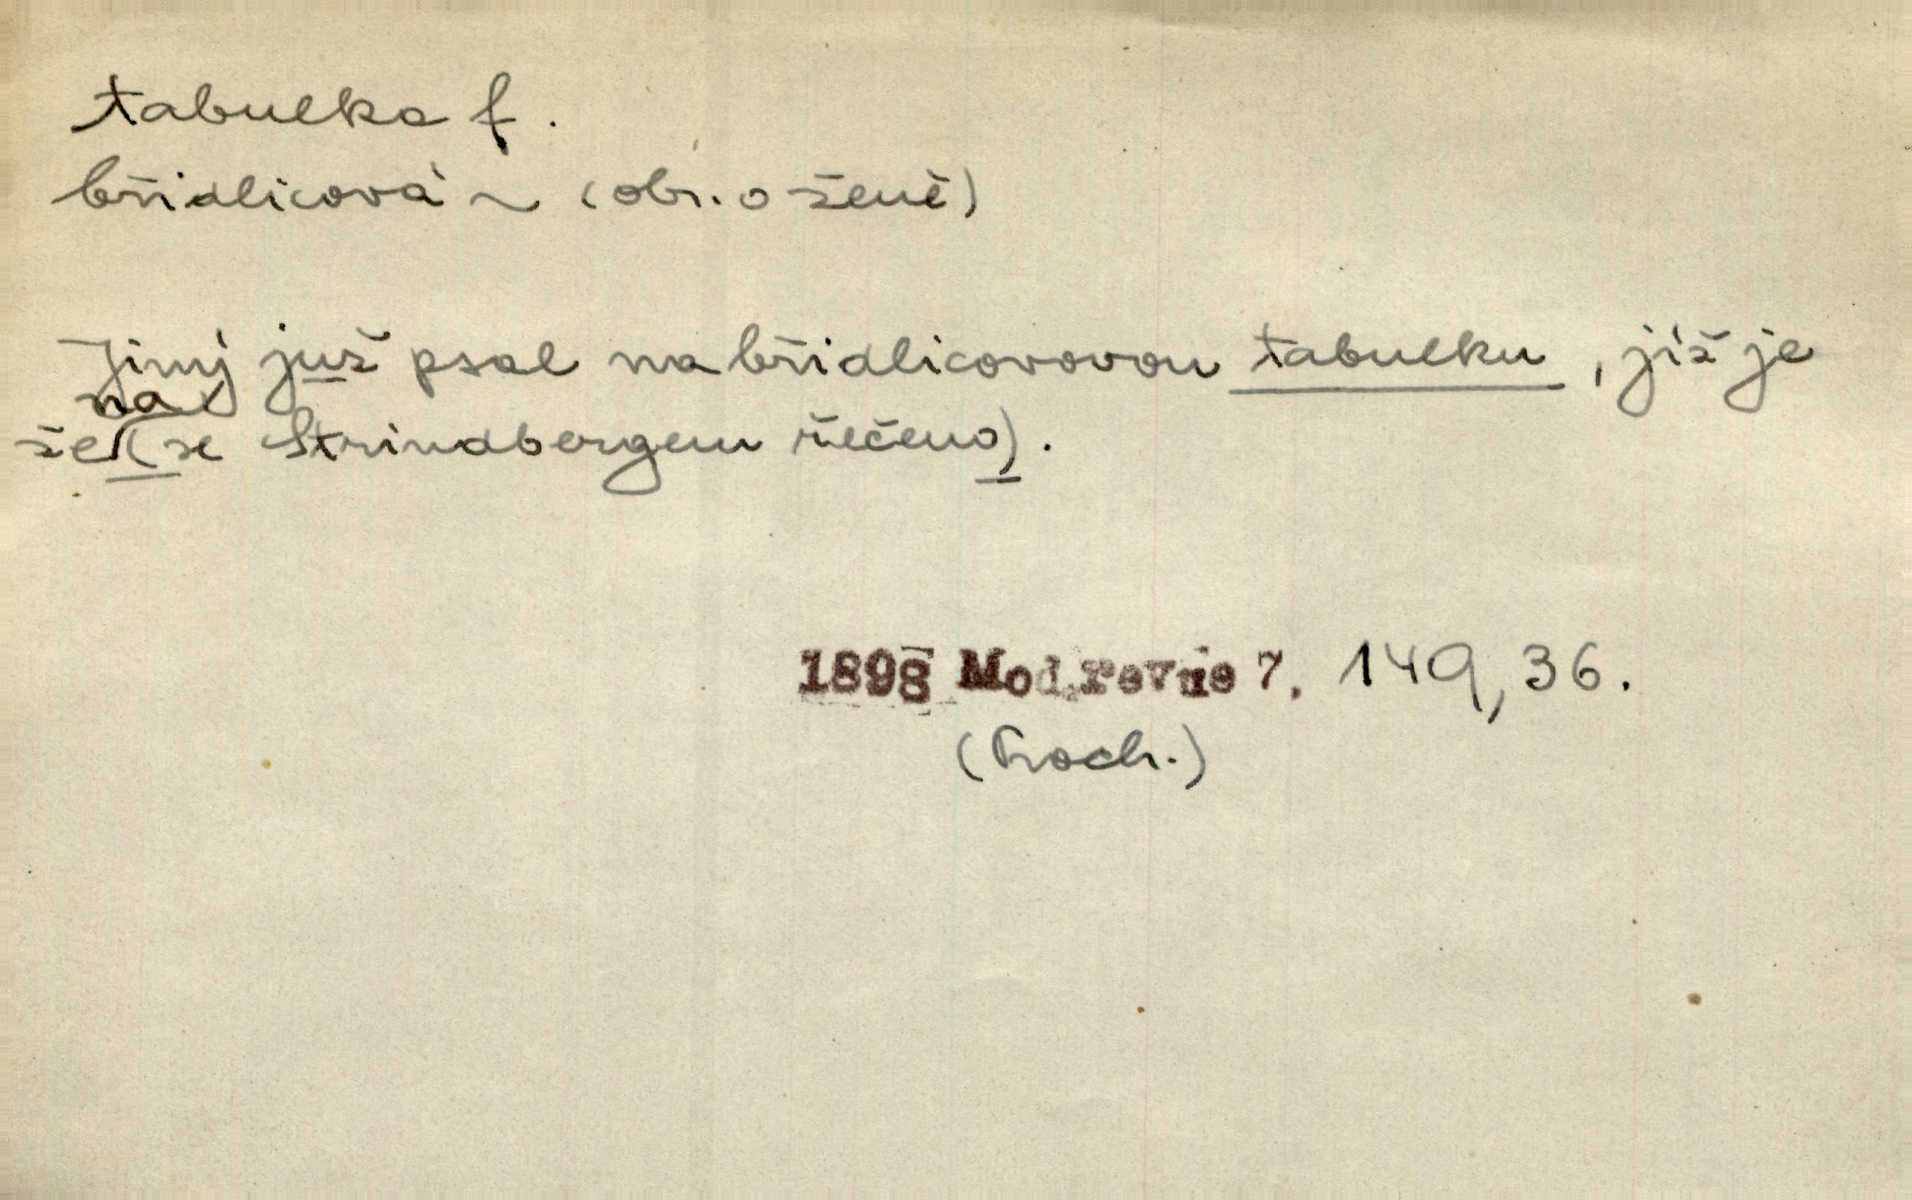 tabulka f.
břidlicová ~ (obr. o ženě)
Jiný juž psal na břidlicovovou tabulku, jíž je
žena (se Strindbergem řečeno).
1898 Mod. revue 7, 149, 36.
(Proch.)